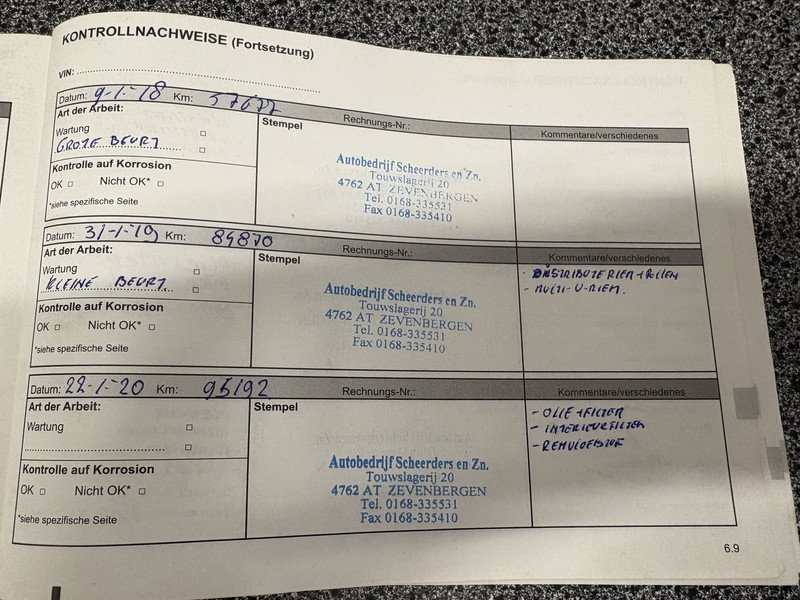 KONTROLLNACHWEISE (Fortsetzung)
VIN:
Datum: 9-1-'18 Km: 57677
Art der Arbeit:
Stempel
Rechnungs-Nr.:
Kommentare/verschiedenes
Wartung
GROTE BEURT
Kontrolle auf Korrosion
OK Nicht OK*
*siehe spezifische Seite
Autobedrijf Scheerders en Zn.
Touwslagerij 20
4762 AT ZEVENBERGEN
Tel. 0168-335531
Fax 0168-335410
Datum: 31-1-'19 Km: 84870
Art der Arbeit:
Stempel
Rechnungs-Nr.:
Kommentare/verschiedenes
Wartung
KLEINE BEURT.
Kontrolle auf Korrosion
OK Nicht OK*
*siehe spezifische Seite
Autobedrijf Scheerders en Zn.
Touwslagerij 20
4762 AT ZEVENBERGEN
Tel. 0168-335531
Fax 0168-335410
- DISTRIBUTIERIEM + ROLLEN
- MULTI-V-RIEM.
Datum: 22-1-'20 Km: 95192
Art der Arbeit:
Stempel
Rechnungs-Nr.:
Kommentare/verschiedenes
Wartung
Kontrolle auf Korrosion
OK Nicht OK*
*siehe spezifische Seite
Autobedrijf Scheerders en Zn.
Touwslagerij 20
4762 AT ZEVENBERGEN
Tel. 0168-335531
Fax 0168-335410
- OLIE + FILTER
- INTERIEURFILTER
- REMVLOEISTOF
6.9